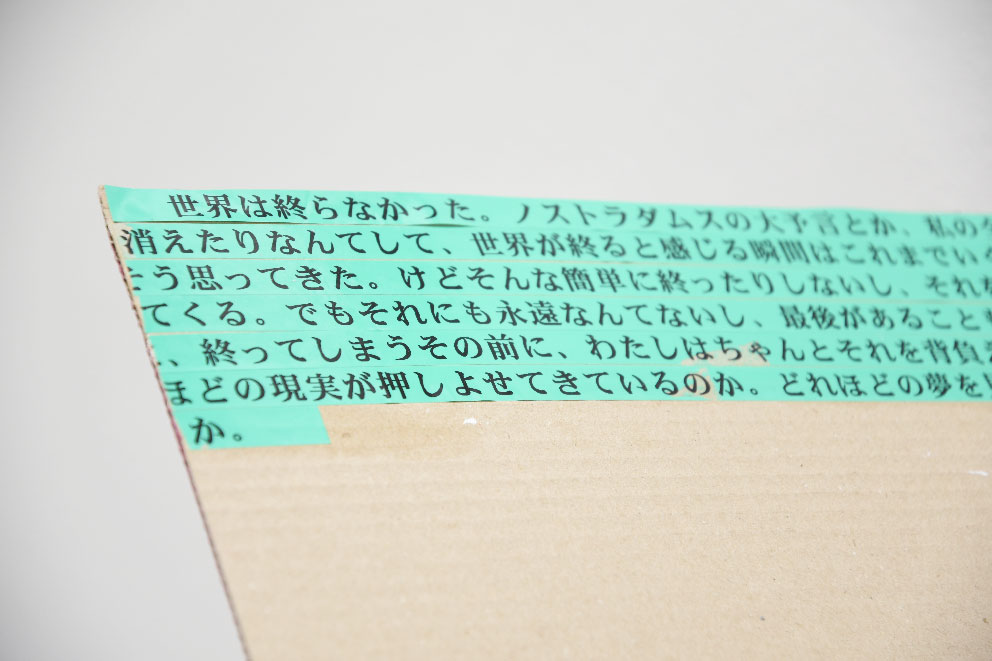 世界は終らなかった。ノストラダムスの大予言とか、私の
消えたりなんてして、世界が終ると感じる瞬間はこれまでい
そう思ってきた。けどそんな簡単に終ったりしないし、それを
てくる。でもそれにも永遠なんてないし、最後があること
、終ってしまうその前に、わたしはちゃんとそれを背負
ほどの現実が押しよせてきているのか。どれほどの夢を
か。